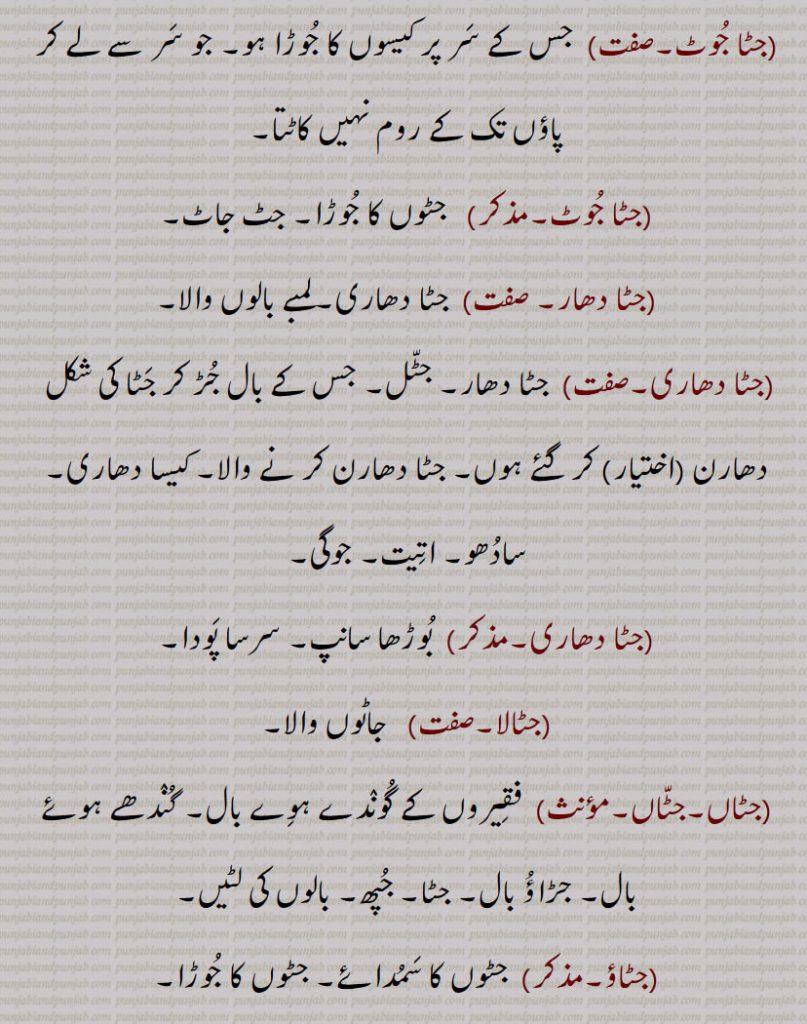 (جٹا جُوٹ۔صفت) جس کے سَر پر کیسوں کا جُوڑا ہو۔ جو سَر سے لے کر
پاؤں تک کے روم نہیں کاٹتا۔
(جٹا جُوٹ۔مذکر) جٹوں کا جُوڑا۔ جٹ جاٹ۔
(جٹا دھار۔ صفت) جٹا دھاری۔لمبے بالوں والا۔
(جٹا دھاری۔صفت) جٹا دھار۔ جٹّل۔ جس کے بال جُڑ کر جَٹا کی شکل
دھارن (اختیار) کر گئے ہوں۔ جٹا دھارن کر نے والا۔ کیسا دھاری۔
سادُھو۔ اتِیت۔ جوگی۔
(جٹا دھاری۔مذکر) بُوڑھا سانپ۔ سرسا پَودا۔
(جٹالا۔صفت) جاٹوں والا۔
(جٹاں۔جٹّاں۔مؤنث) فقِیروں کے گُونْدے ہوِے بال۔ گُنْدھے ہوئے
بال۔ جڑاؤُ بال۔ جٹا۔ جُپھ۔ بالوں کی لٹیں۔
(جٹاؤ۔مذکر) جٹوں کا سَمُدائے۔ جٹوں کا جُوڑا۔